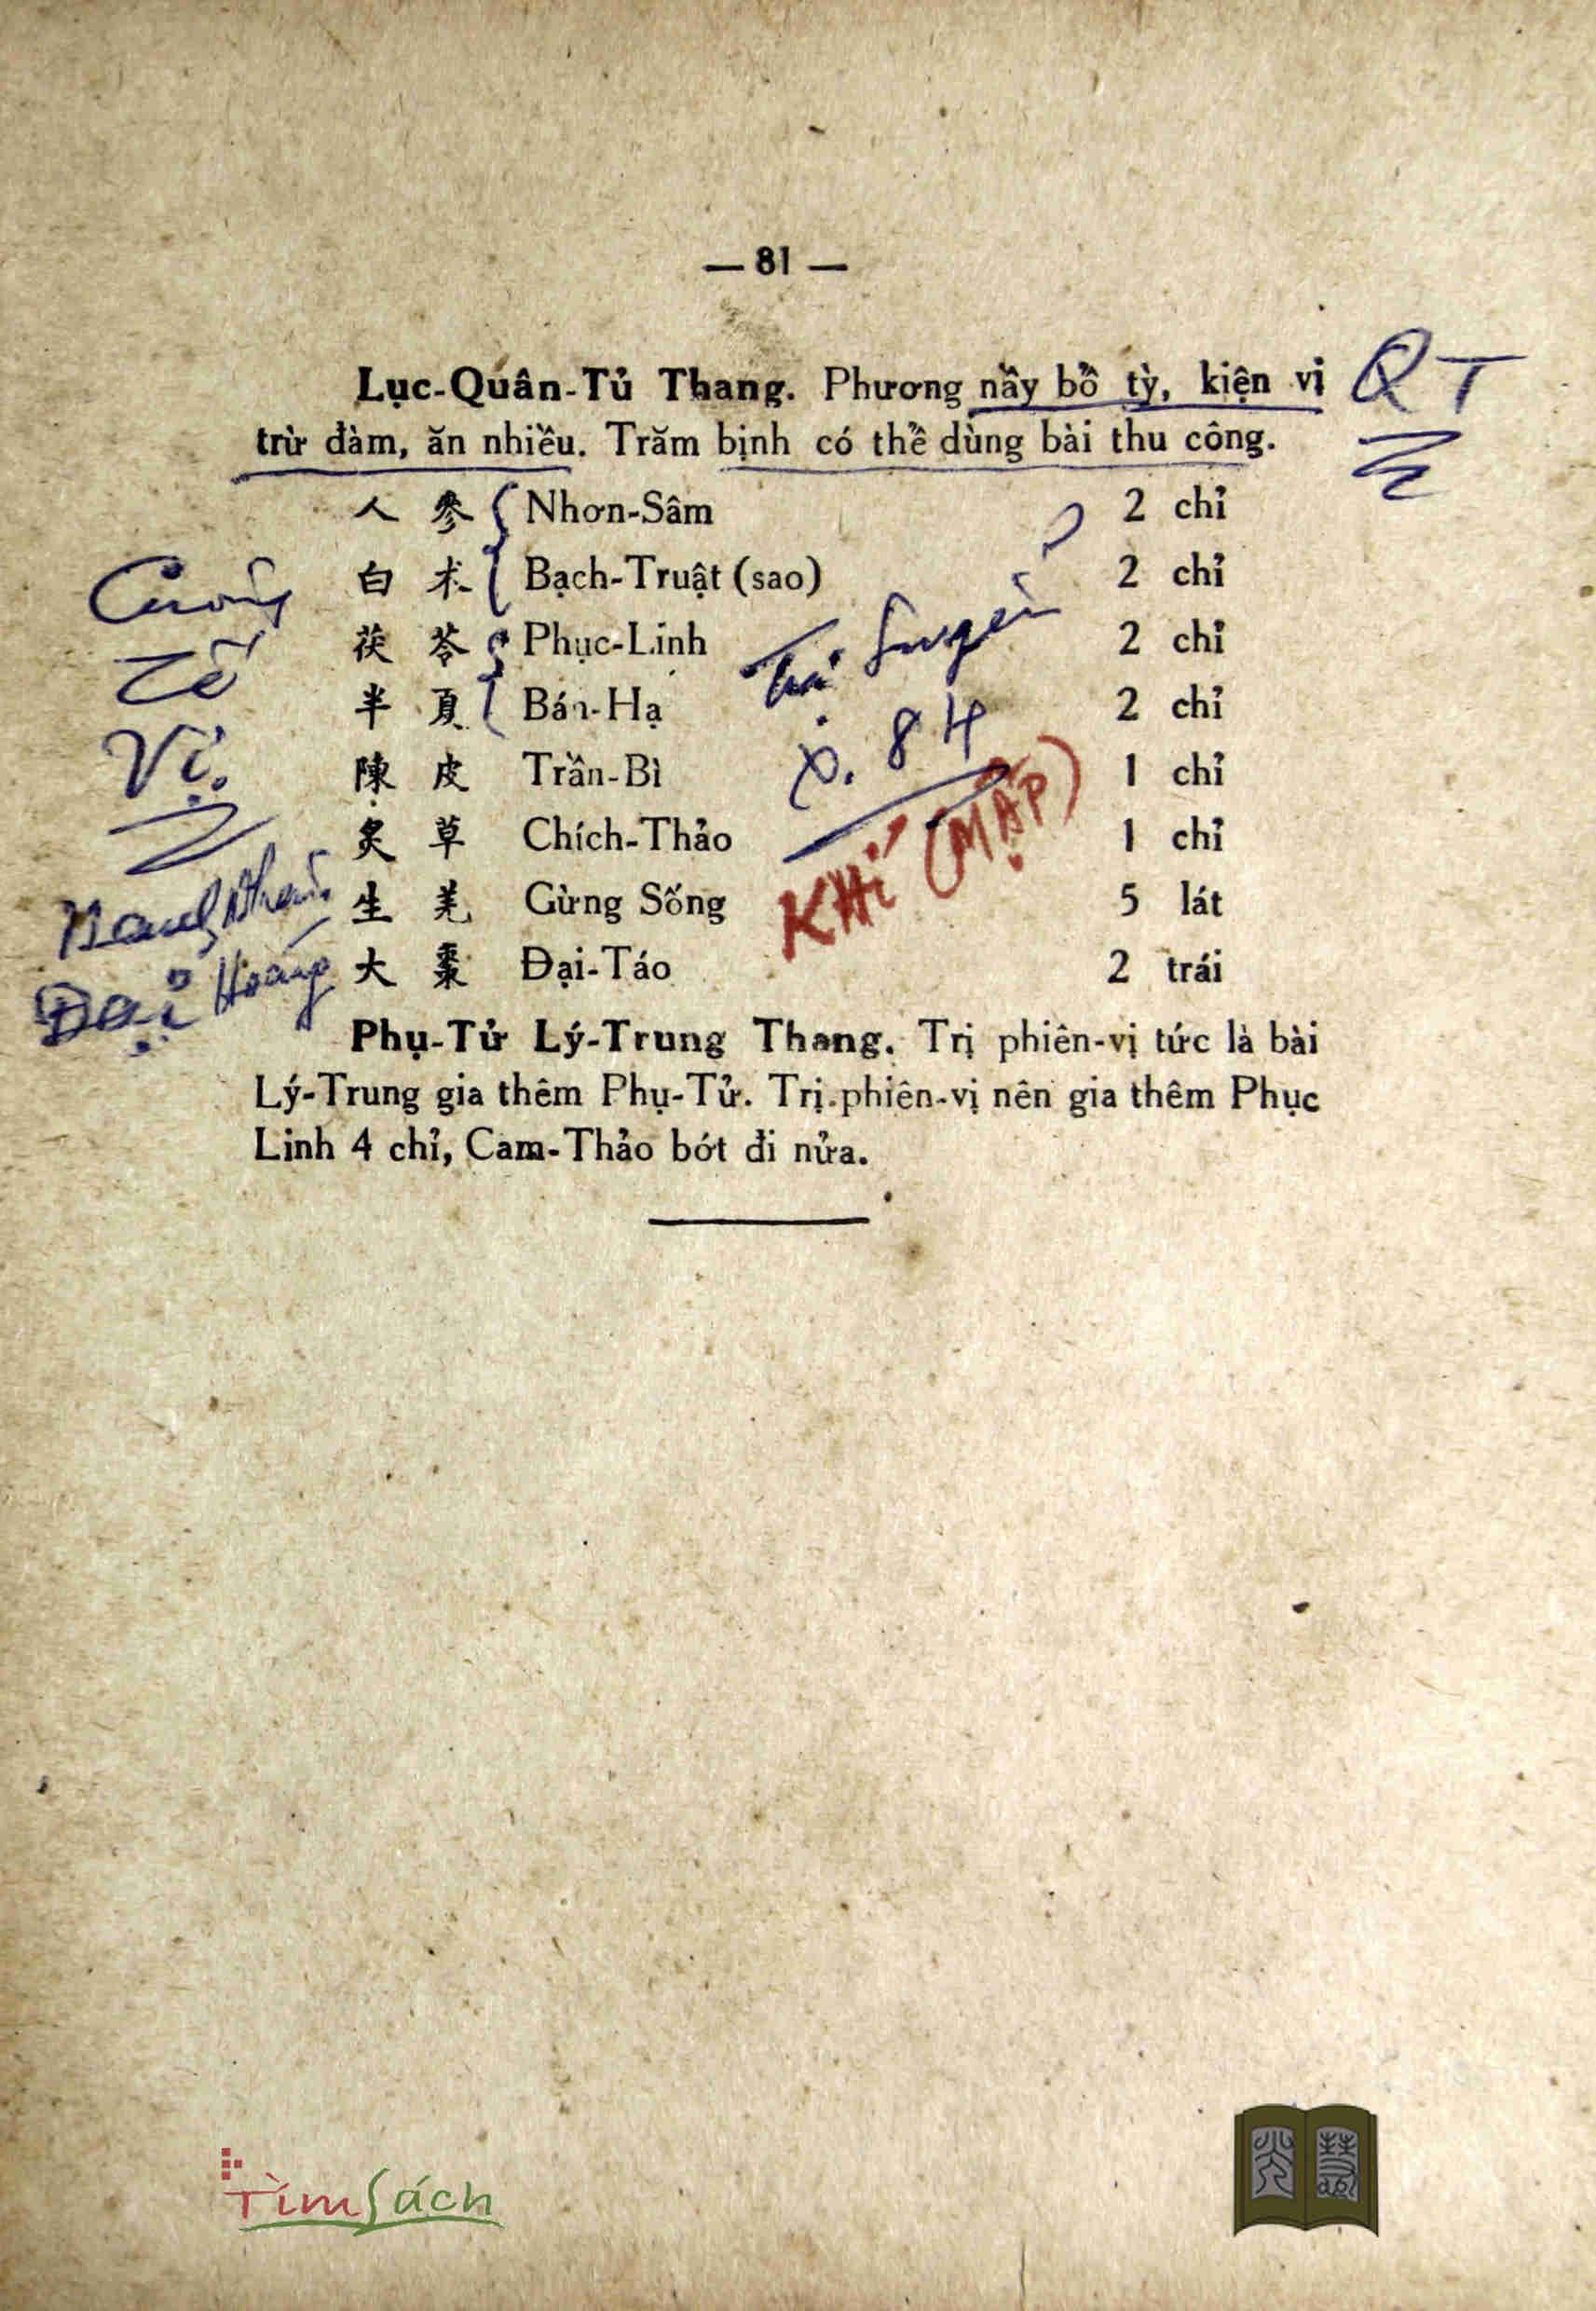 — 81 —
Lục-Quân-Tủ Thang. Phương nầy bổ tỳ, kiện vị
QT
trừ đàm, ăn nhiều. Trăm bịnh có thể dùng bài thu công.
人 參 Nhơn-Sâm 2 chỉ
白 朮 Bạch-Truật (sao) 2 chỉ
茯 苓 Phục-Linh 2 chỉ
半 夏 Bán-Hạ 2 chỉ
陳 皮 Trần-Bì 1 chỉ
炙 草 Chích-Thảo 1 chỉ
生 羌 Gừng Sống 5 lát
大 棗 Đại-Táo 2 trái
Vị.
Đại Hoàng
Trị Suyễn
x. 84
KHÍ (MẬP)
Phụ-Tử Lý-Trung Thang. Trị phiên-vị tức là bài
Lý-Trung gia thêm Phụ-Tử. Trị phiên-vị nên gia thêm Phục
Linh 4 chỉ, Cam-Thảo bớt đi nửa.
TìmSách